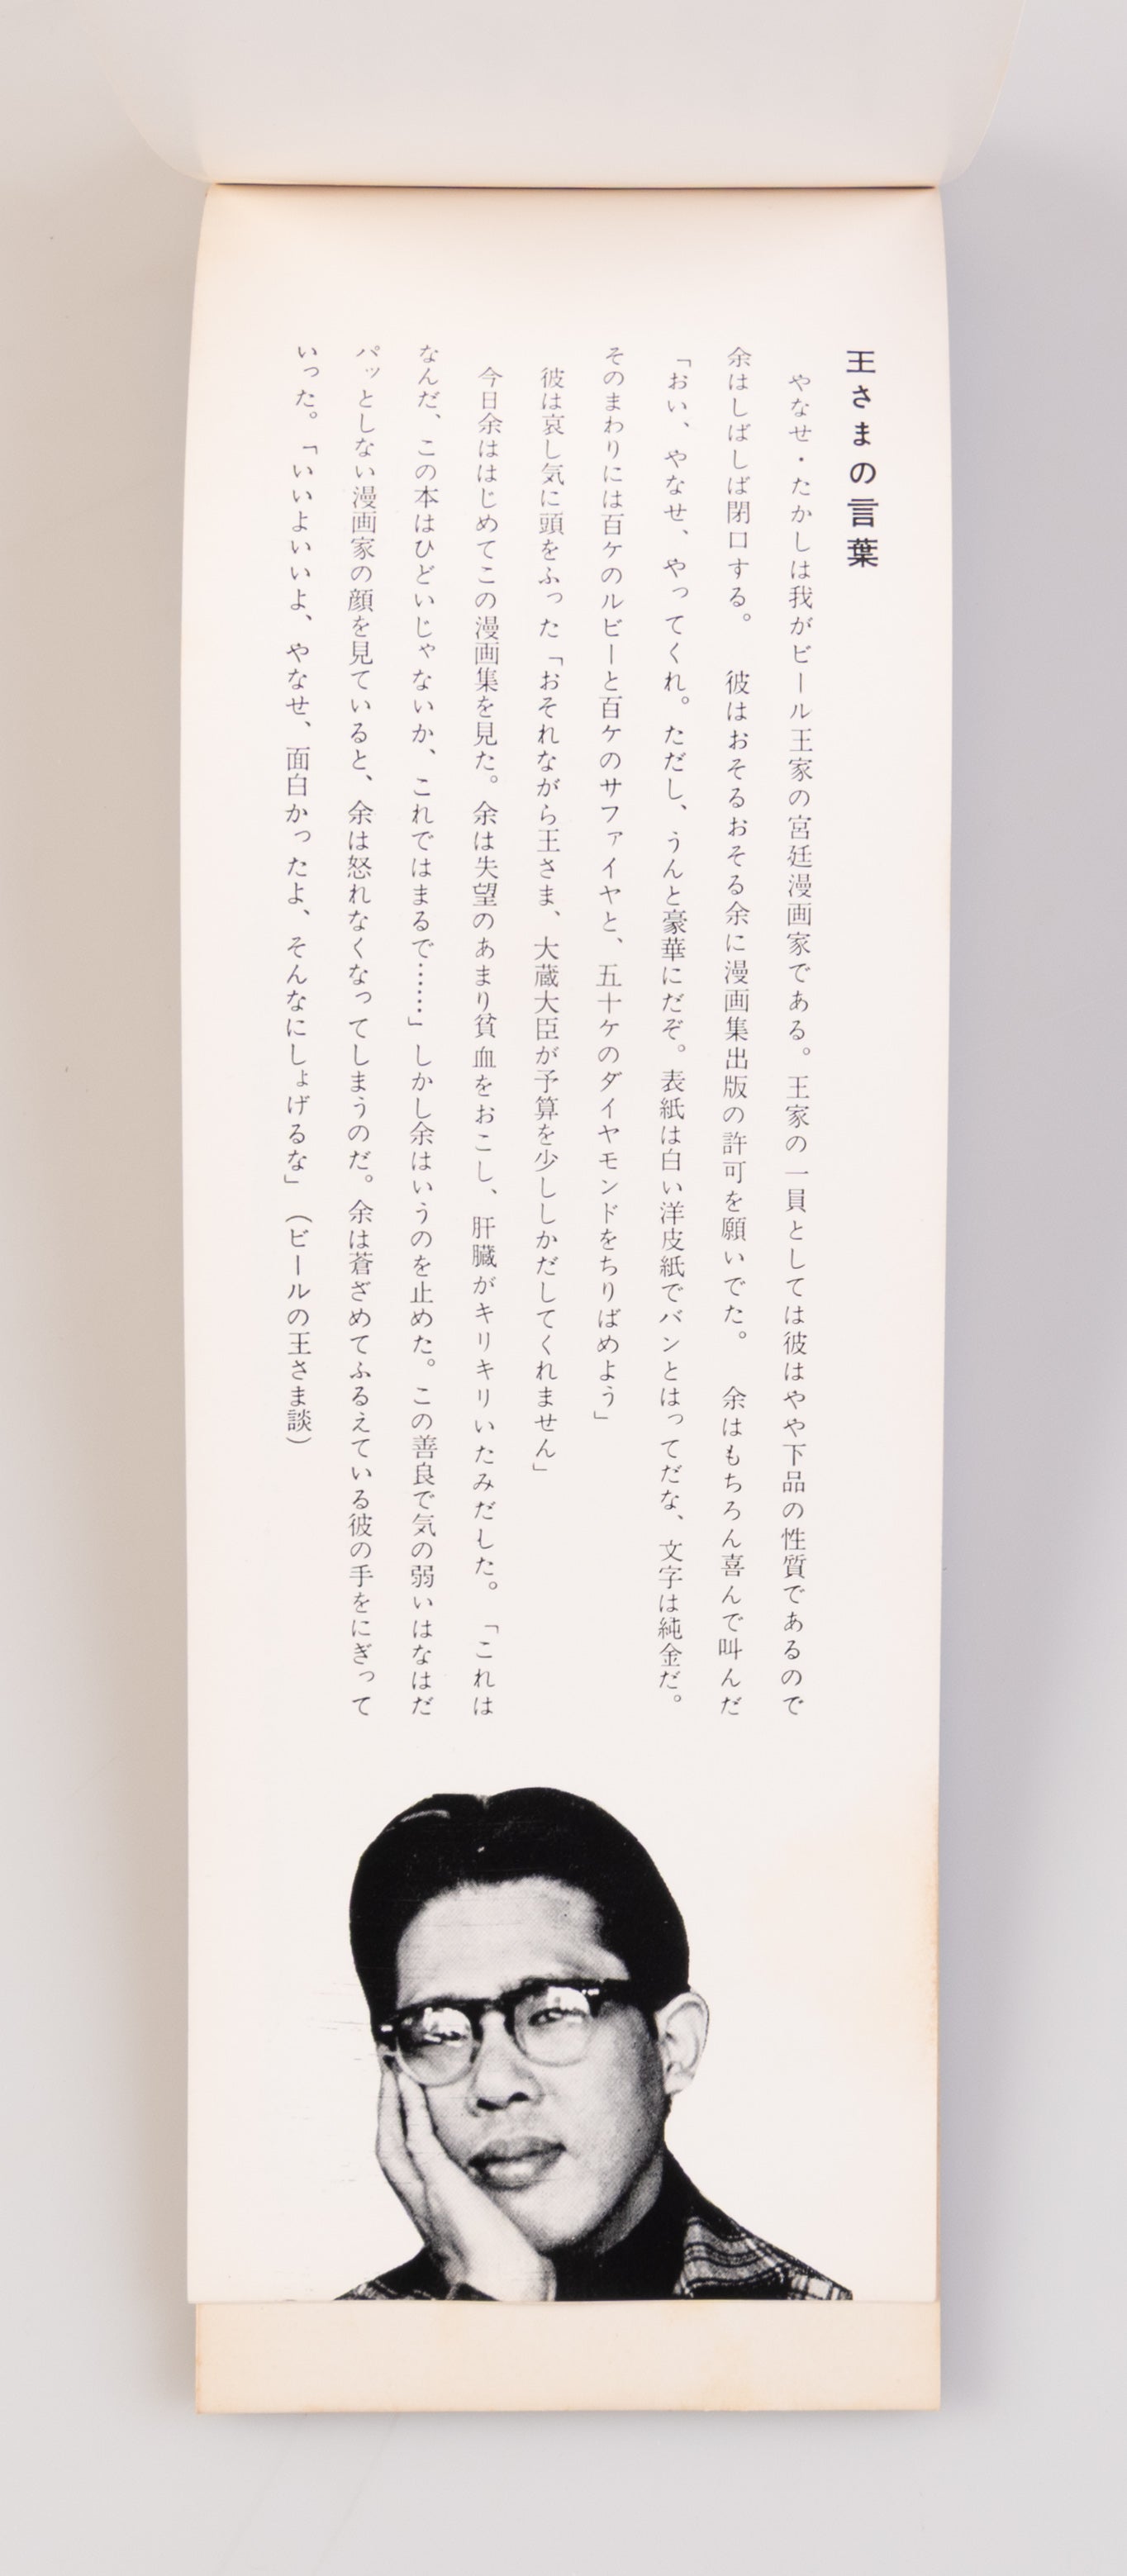 王さまの言葉
やなせ・たかしは我がビール王家の宮廷漫画家である。王家の一員としては彼はやや下品の性質であるので
余はしばしば閉口する。　彼はおそるおそる余に漫画集出版の許可を願いでた。　余はもちろん喜んで叫んだ
「おい、やなせ、やってくれ。ただし、うんと豪華にだぞ。表紙は白い洋皮紙でバンとはってだな、文字は純金だ。
そのまわりには百ケのルビーと百ケのサファイヤと、五十ケのダイヤモンドをちりばめよう」
彼は哀し気に頭をふった「おそれながら王さま、大蔵大臣が予算を少ししかだしてくれません」
今日余ははじめてこの漫画集を見た。余は失望のあまり貧血をおこし、肝臓がキリキリいたみだした。「これは
なんだ、この本はひどいじゃないか、これではまるで……」しかし余はいうのを止めた。この善良で気の弱いはなはだ
パッとしない漫画家の顔を見ていると、余は怒れなくなってしまうのだ。余は蒼ざめてふるえている彼の手をにぎって
いった。「いいよいいよ、やなせ、面白かったよ、そんなにしょげるな」（ビールの王さま談）